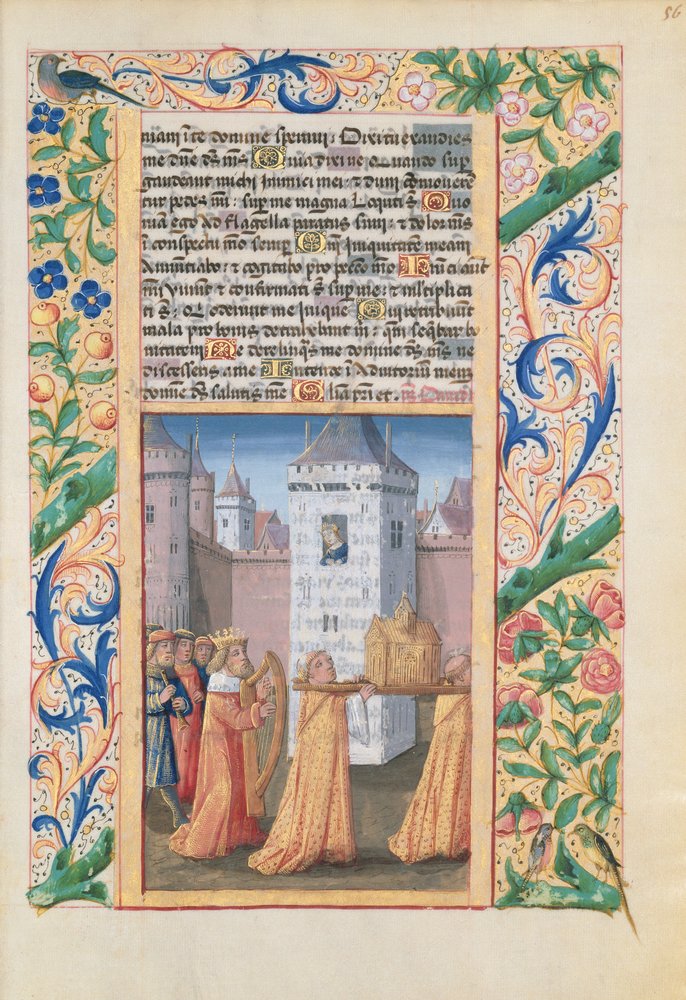 niam i te domine speraui: tu exaudies
me dne ds ms Quia dixi ne Quando sup
gaudeant michi Inimici mei: et dum comouent
tur pedes mi: sup me magna Locuti s Quo
niam ego Ad flagella paratus sum: et dolor ms
i conspectu mo semp Qm Iniquitate meam
Annunciabo: et cogitabo pro pecco mo Inici aut
mi viuunt et confirmati s sup me: et multiplica
ti s: Q oderunt me inique Qui retribuunt
mala pro bonis detrahebant m: qm seqbar bo
nitatem Ne derelinqs me domine ds ms ne
discesseris a me Intende i Adiutorium meum
domine ds salutis mee Glia pri et. ps Dauid
56